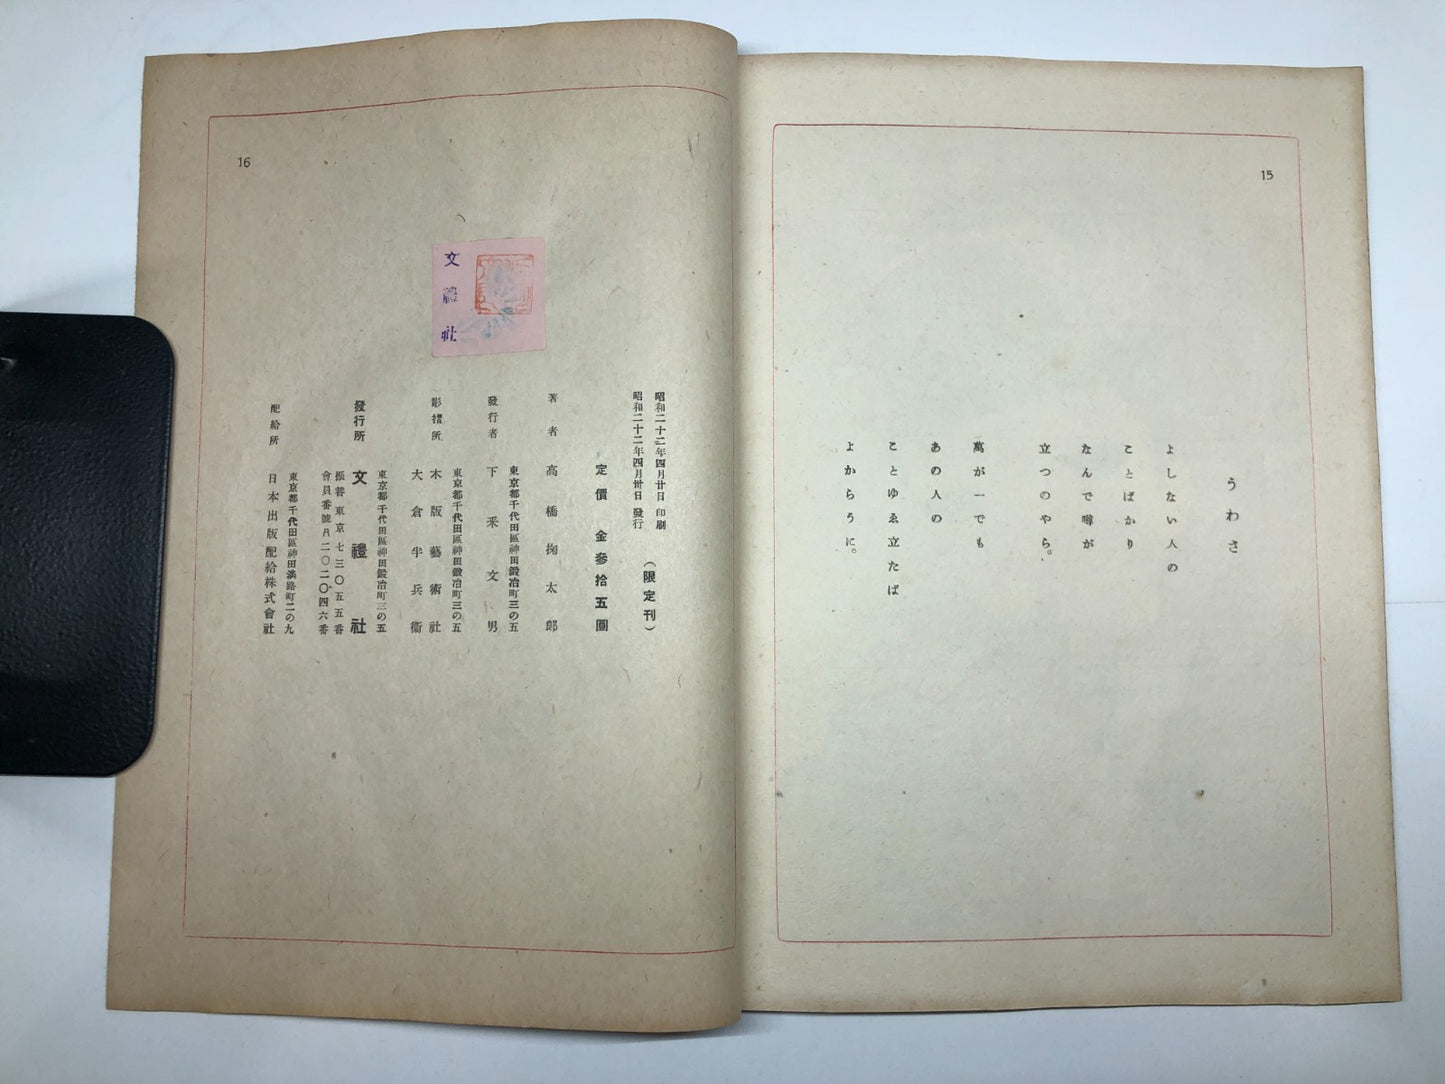 15
うわさ
よしない人の
ことばかり
なんで噂が
立つのやら。
萬が一でも
あの人の
ことゆゑ立たば
よからうに。
16
文禮社
昭和二十二年四月廿日 印刷
昭和二十二年四月卅日 發行
（限定刊）
定價 金參拾五圓
著者 高橋掬太郎
東京都千代田區神田鍛冶町三の五
發行者 下釆文男
東京都千代田區神田鍛冶町三の五
彫摺所 木版藝術社
大倉半兵衞
東京都千代田區神田鍛冶町三の五
發行所 文禮社
振替東京七三〇五五番
會員番號A二〇二〇四六番
東京都千代田區神田淡路町二の九
配給所 日本出版配給株式會社